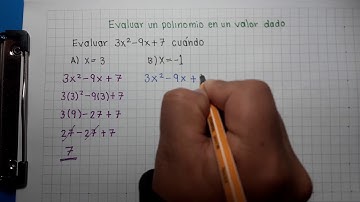 Evaluar un polinomio en un valor dado
Evaluar 3x²-9x+7 cuándo
A) x=3
B) x=-1
3x²-9x+7
3(3)²-9(3)+7
3(9)-27+7
27-27+7
7
3x²-9x+